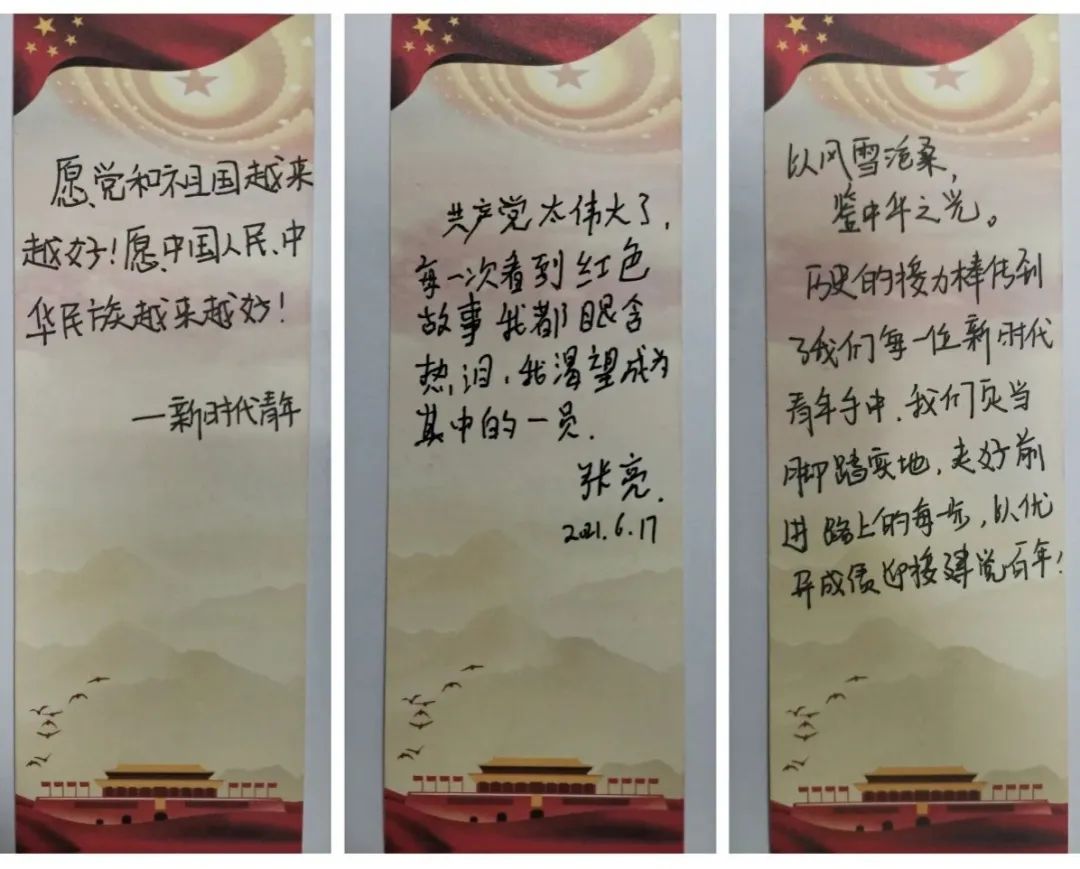 愿党和祖国越来
越好!愿中国人民、中
华民族越来越好!
—新时代青年
共产党太伟大了,
每一次看到红色
故事我都眼含
热泪,我渴望成为
其中的一员.
张亮.
2021.6.17
以风雪沧桑,
鉴中华之党。
历史的接力棒传到
了我们每一位新时代
青年手中.我们更当
脚踏实地,走好前
进路上的每步,以优
异成绩迎接建党百年!